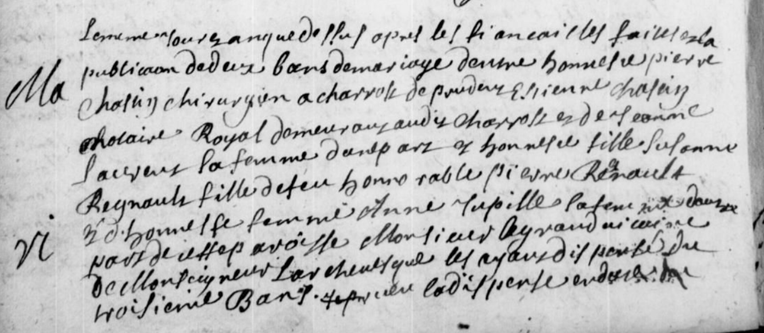 Le meme jour et an que dessus apres les fiancailles faites et la
publicaon de deux bans de mariage dentre honneste pierre
Ma
chasin chirurgien a charrost de prudent Estienne chasin
Notaire Royal demeurant audit charrost et de Jeanne
Laurent sa femme dune part et honneste fille Susanne
Reynault fille de feu honnorable pierre Renault
et dhonneste femme Anne Tupille sa femme dautre
vi
part de cette paroisse Monsieur le grand vicaire
de Monseigneur Larchevesque les ayant dispensé du
troisieme Bans. la dispense en date du